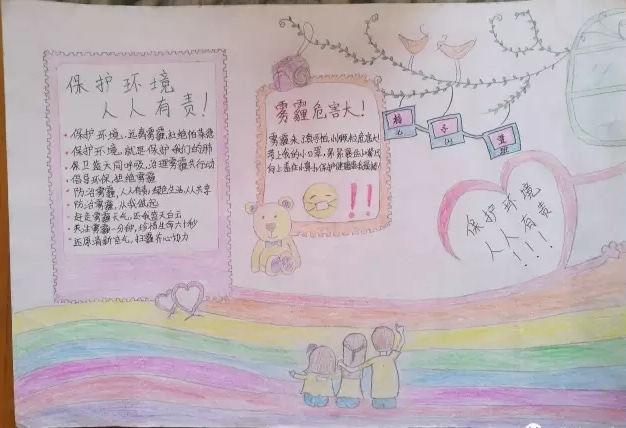 保护环境
人人有责！
保护环境,远离雾霾,
保护环境,就是保护我们的肺
保卫蓝天同呼吸,治理雾霾共行动
倡导环保,拒绝雾霾
防治雾霾,人人有责,绿色生活,人人共享
防治雾霾,从我做起
赶走雾霾天气,还我蓝天白云
关注雾霾一分钟,珍惜生命六十秒
还原清新空气,扫霾齐心协力
雾霾危害大！
雾霾来了孩子怕,危害大!
带上我的小口罩,
保护健康
!!
保护环境
人人有责
!!!